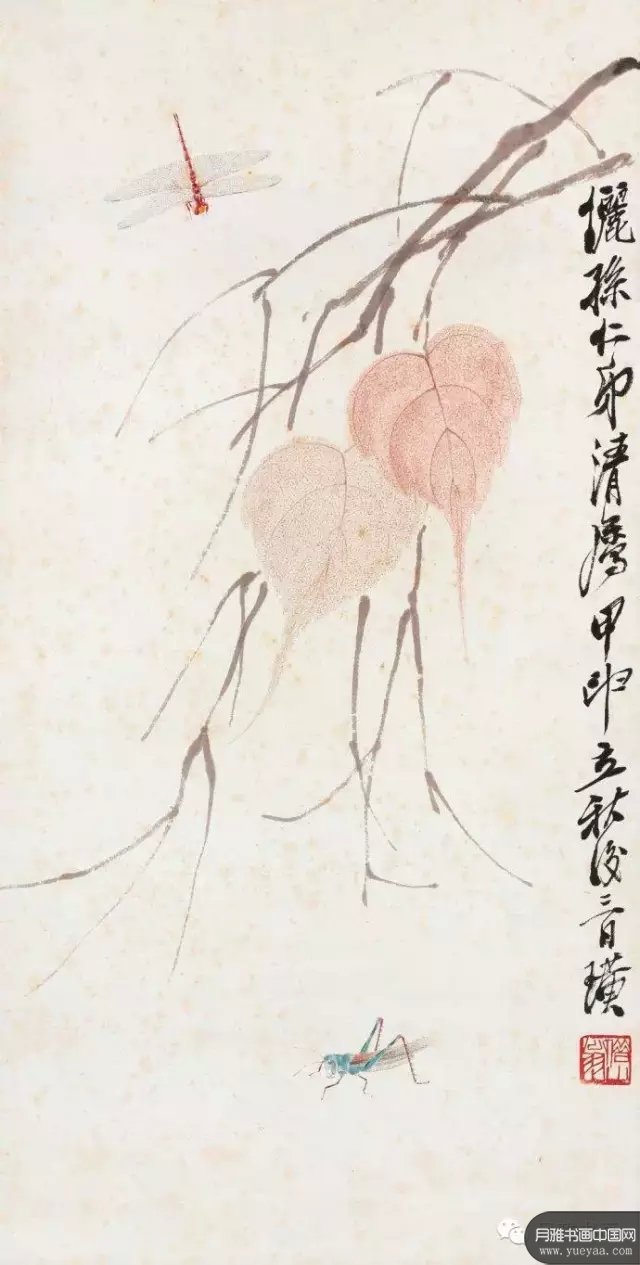 儷孫仁弟清屬甲申立秋後三日璜
月雅书画中国网
www.yueyaa.com